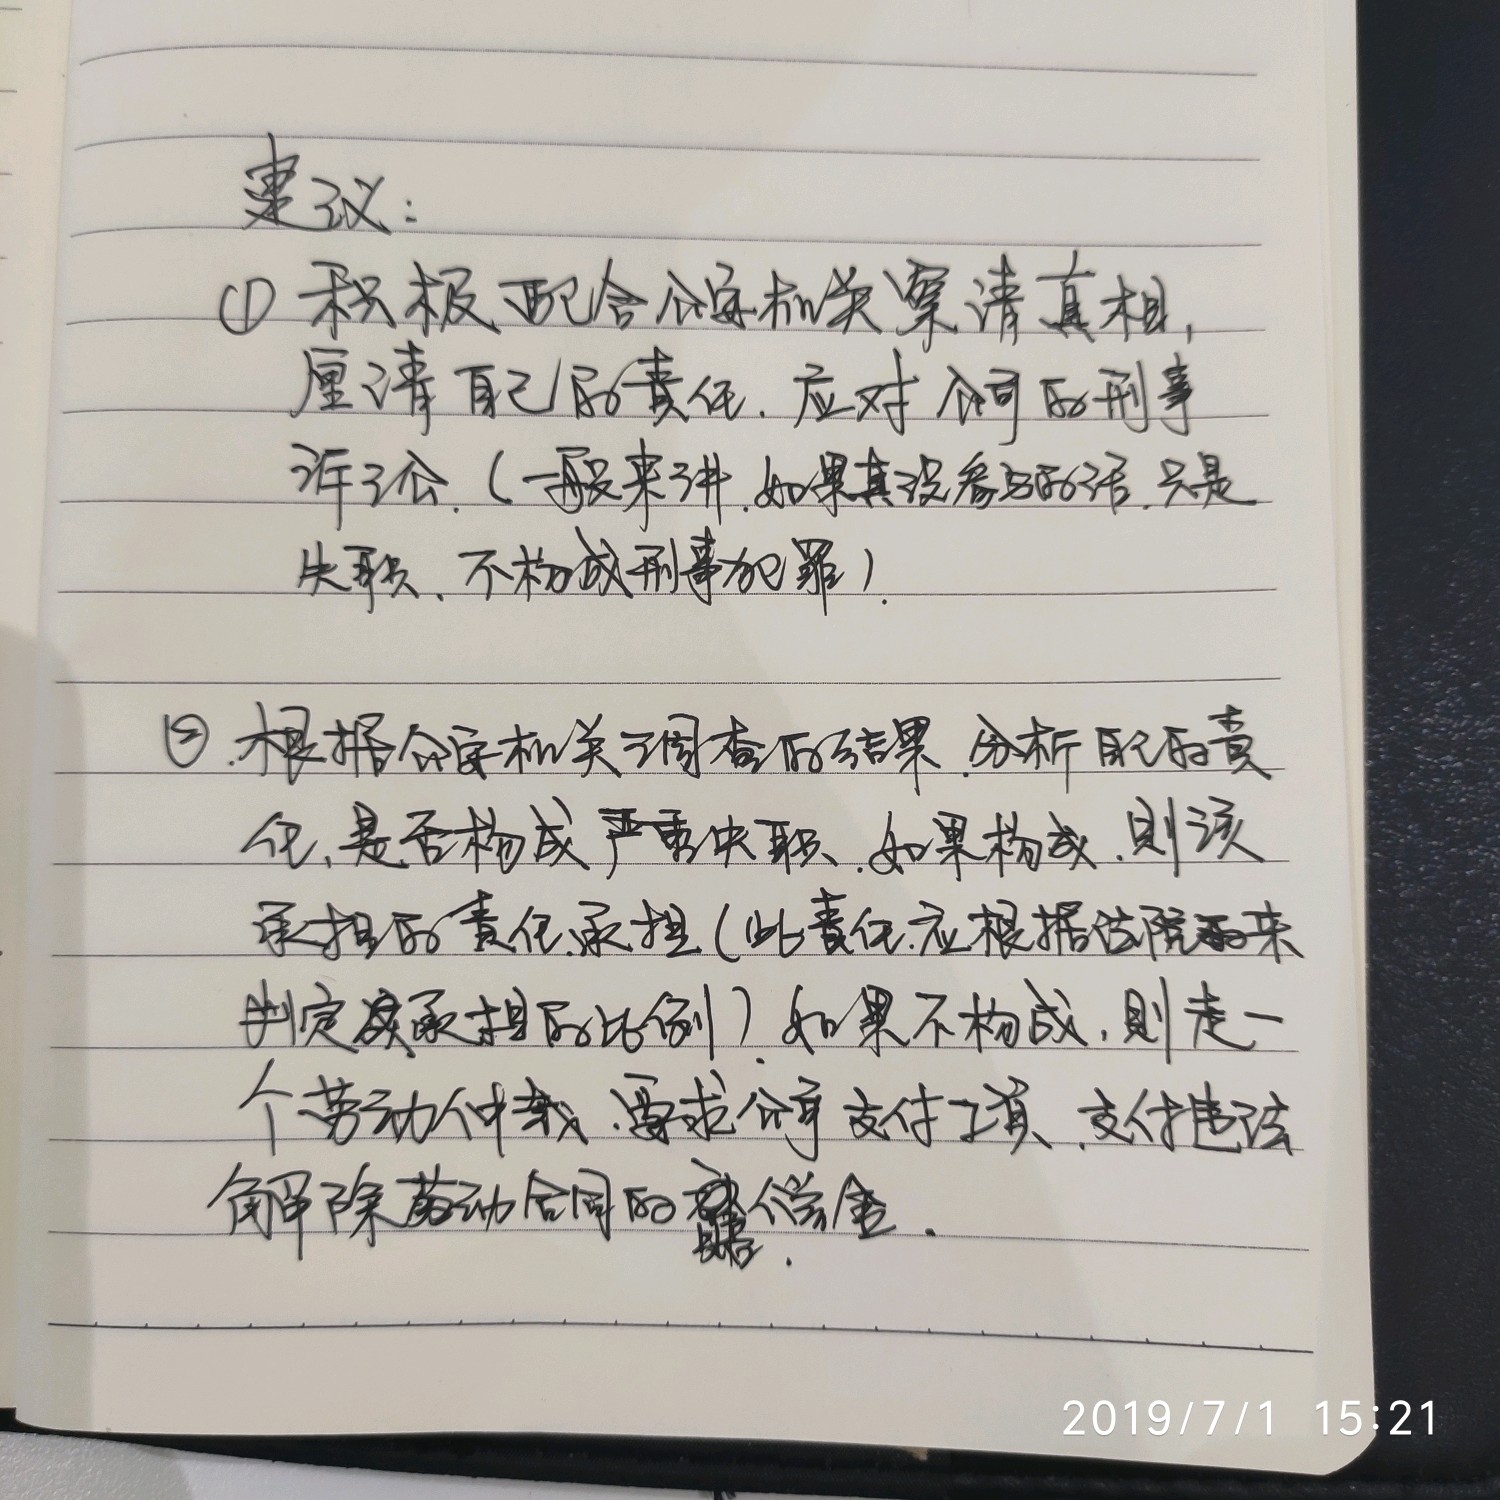 建议：
① 积极配合公安机关案清真相，
厘清自己的责任．应对公司的刑事
诉讼．（一般来讲．如果真没参与的话．只是
失职、不构成刑事犯罪）．
② 根据公安机关调查的结果．分析自己的责
任、是否构成严重失职．如果构成．则该
承担的责任承担（此责任应根据法院来
判定承担的比例）．如果不构成，则走一
个劳动仲裁．要求公司支付工资、支付违法
解除劳动合同的赔偿金．
2019/7/1 15:21